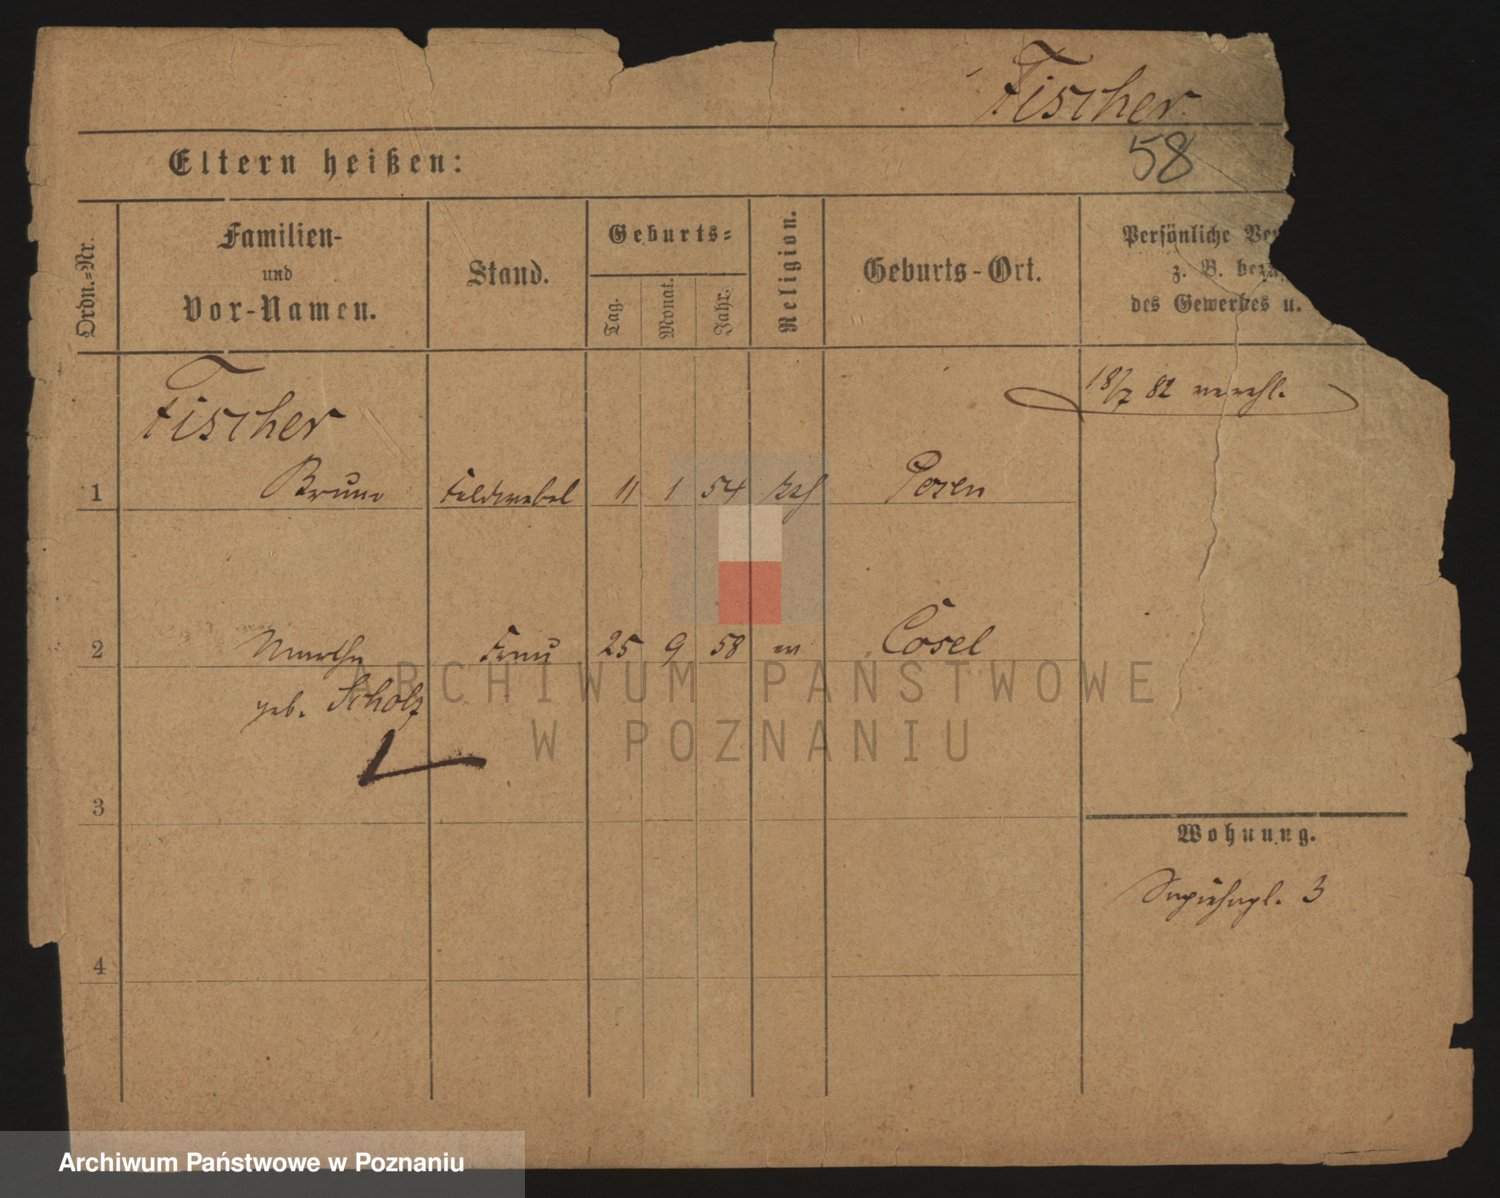 Fischer
58
Eltern heißen:
Ordn.-Nr.
Familien-
und
Vor-Namen.
Stand.
Geburts-
Tag.
Monat.
Jahr.
Religion.
Geburts-Ort.
Persönliche
z. B.
des Gewerbes u.
18/7 82 verehl.
Fischer
1 Bruno Feldwebel 11 1 54 kath Posen
2 Martha Frau 25 9 58 ev Cosel
geb. Scholz
3
4
Wohnung.
Sapiehapl. 3
ARCHIWUM PAŃSTWOWE
W POZNANIU
Archiwum Państwowe w Poznaniu